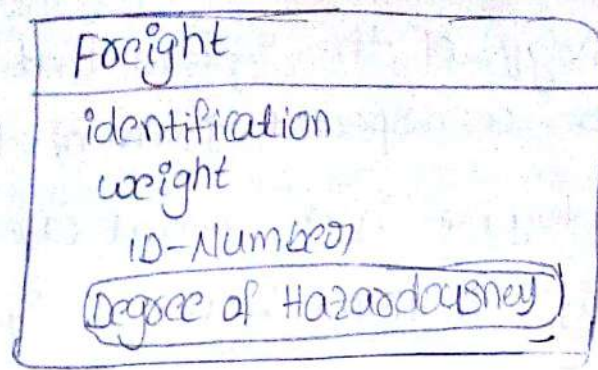 Freight
identification
weight
ID-Number
Degree of Hazardousney